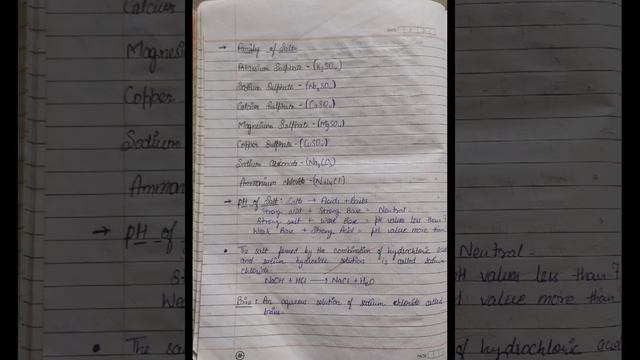 → Family of Salts
Potassium Sulphate - (K₂SO₄)
Sodium Sulphate - (Na₂SO₄)
Calcium Sulphate - (CaSO₄)
Magnesium Sulphate - (MgSO₄)
Copper Sulphate - (CuSO₄)
Sodium Carbonate - (Na₂CO₃)
Ammonium chloride - (NH₄Cl)
→ pH of Salt: Salts → Acids + bases
Strong + Strong Base = Neutral
Strong salt + Weak Base = pH values less than 7
Weak Base + Strong Acid = pH value more than
• The salt formed by the combination of hydrochloric acid
and sodium hydroxide solution is called sodium
chloride.
NaOH + HCl → NaCl + H₂O
Brine: An aqueous solution of sodium chloride called
brine.